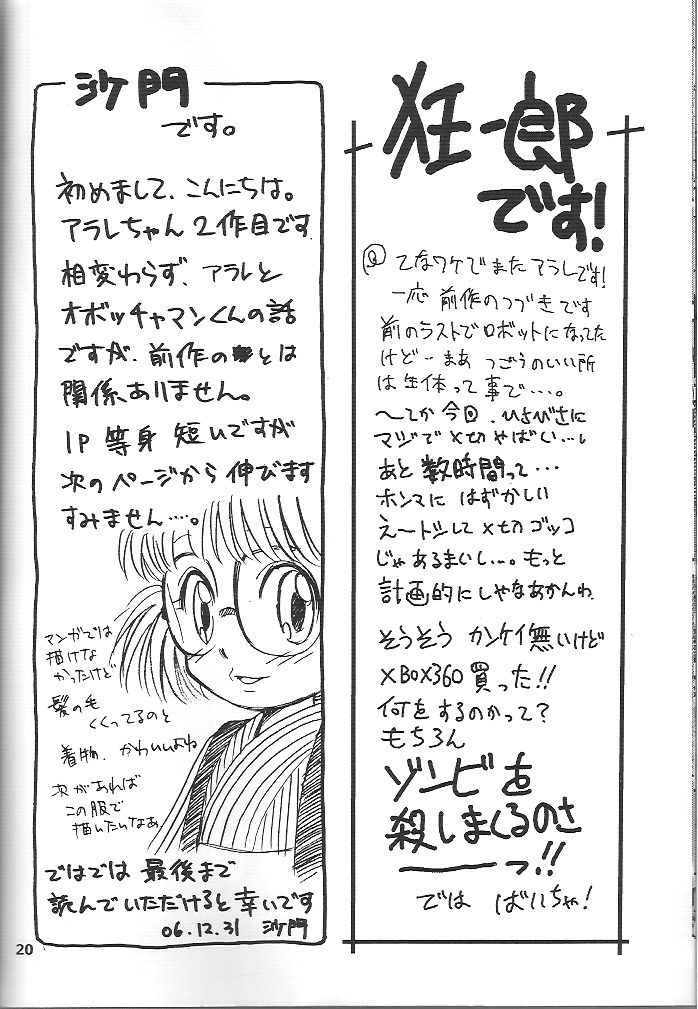 狂一郎
です!
てなワケでまたアラレです!
一応 前作のつづきです
前のラストでロボットになってた
けど‥まあ つごうのいい所
は生体って事で…。
〜てか今回、ひさびさに
マジで〆切やばい…。
あと数時間って…
ホンマに はずかしい
え〜トシして〆切ゴッコ
じゃあるまいし…。もっと
計画的にしゃなあかんわ
そうそう カンケイ無いけど
XBOX360 買った!!
何をするのかって?
もちろん
ゾンビを
殺しまくるのさ
――っ!!
では ばいちゃ!
沙門
です。
初めまして、こんにちは。
アラレちゃん 2作目です
相変わらず、アラレと
オボッチャマンくんの話
ですが、前作のとは
関係、ありません。
1P 等身 短いですが
次のページから 伸びます
すみません…。
マンガでは
描けな
かったけど
髪の毛
くくってるのと
着物、かわいいよね
次があれば
この服で
描いたいなあ
ではでは 最後まで
読んでいただけると幸いです
06.12.31 沙門
20